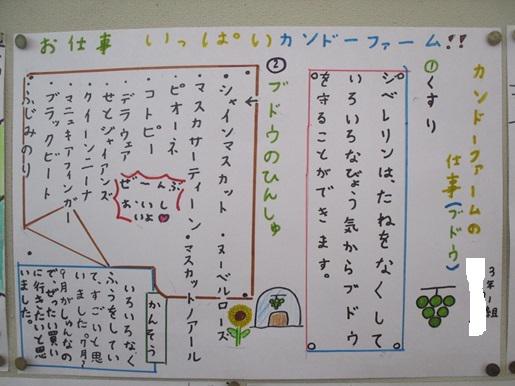 お仕事 いっぱいカンドーファーム!!
カンドーファームの
仕事(ブドウ)
3年1組
①くすり
ジベレリンは、たねをなくして
いろいろなびょう気からブドウ
を守ることができます。
②ブドウのひんしゅ
・シャインマスカット ・ヌーベルローズ
・マスカサーティーン ・マスカットノアール
・ピオーネ
・コトピー
・デラウェア
・せとジャイアンズ
・クイーンニーナ
・マニュキアフィンガー
・ブラックビート
・ふじみのり
ぜーんぶ
あ
いよ
し
かんそう
いろいろなく
ふうをしてい
て、すごいと思
いました。9月か
でぜったい買い
に行きたいと思
いました。